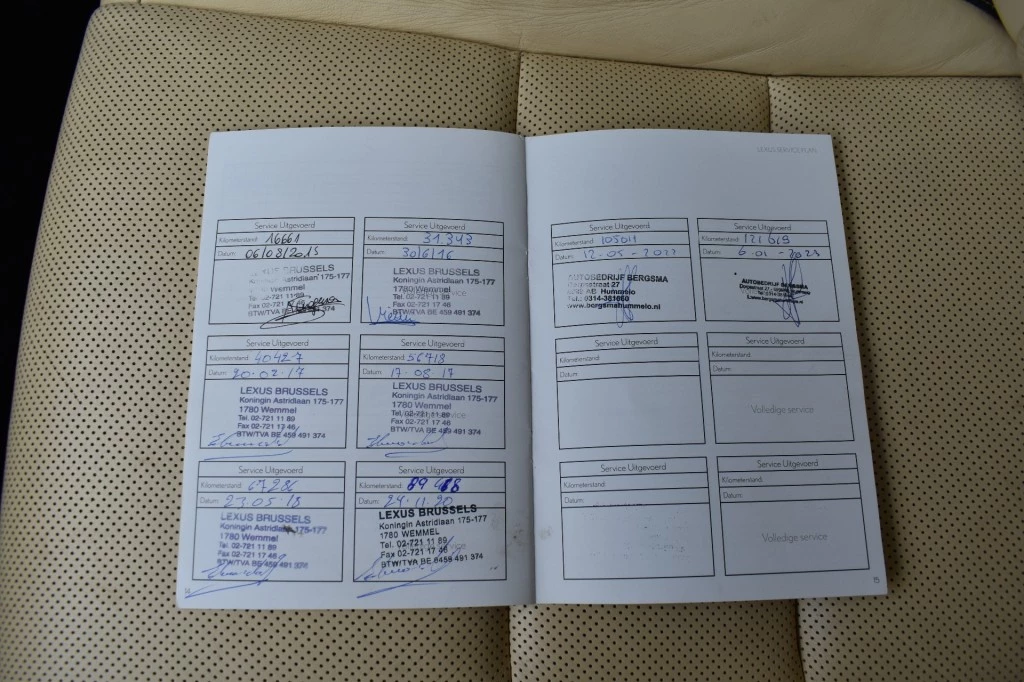 LEXUS SERVICE PLAN
Service Uitgevoerd
Kilometerstand: 16661
Datum: 06/08/2015
BRUSSELS
Koningin Astridlaan 175-177
1780 Wemmel
Tel. 02-721 11 89
Fax 02-721 17 46
BTW/TVA BE 459 491 374
Service Uitgevoerd
Kilometerstand: 31.343
Datum: 30/6/16
LEXUS BRUSSELS
Koningin Astridlaan 175-177
1780 Wemmel
Tel. 02-721 11 89
Fax 02-721 17 46
BTW/TVA BE 459 491 374
Service Uitgevoerd
Kilometerstand: 40427
Datum: 20.02.17
LEXUS BRUSSELS
Koningin Astridlaan 175-177
1780 Wemmel
Tel. 02-721 11 89
Fax 02-721 17 46
BTW/TVA BE 459 491 374
Service Uitgevoerd
Kilometerstand: 56718
Datum: 17.08.17
LEXUS BRUSSELS
Koningin Astridlaan 175-177
1780 Wemmel
Tel. 02-721 11 89
Fax 02-721 17 46
BTW/TVA BE 459 491 374
Service Uitgevoerd
Kilometerstand: 67286
Datum: 23.05.18
LEXUS BRUSSELS
Koningin Astridlaan 175-177
1780 Wemmel
Tel. 02-721 11 89
Fax 02-721 17 46
BTW/TVA BE 459 491 374
Service Uitgevoerd
Kilometerstand:
Datum: 24.11.20
LEXUS BRUSSELS
Koningin Astridlaan 175-177
1780 WEMMEL
Tel. 02-721 11 89
Fax 02-721 17 46
BTW/TVA BE 0459 491 374
14
Service Uitgevoerd
Kilometerstand:
Datum: 12-05-2022
AUTOBEDRIJF BERGSMA
Dorpsstraat 27
Hummelo
Tel.: 0314-381660
www.bergsmahummelo.nl
Service Uitgevoerd
Kilometerstand:
Datum:
AUTOBEDRIJF BERGSMA
Service Uitgevoerd
Kilometerstand:
Datum:
Service Uitgevoerd
Kilometerstand:
Datum:
Volledige service
Service Uitgevoerd
Kilometerstand:
Datum:
Service Uitgevoerd
Kilometerstand:
Datum:
Volledige service
15